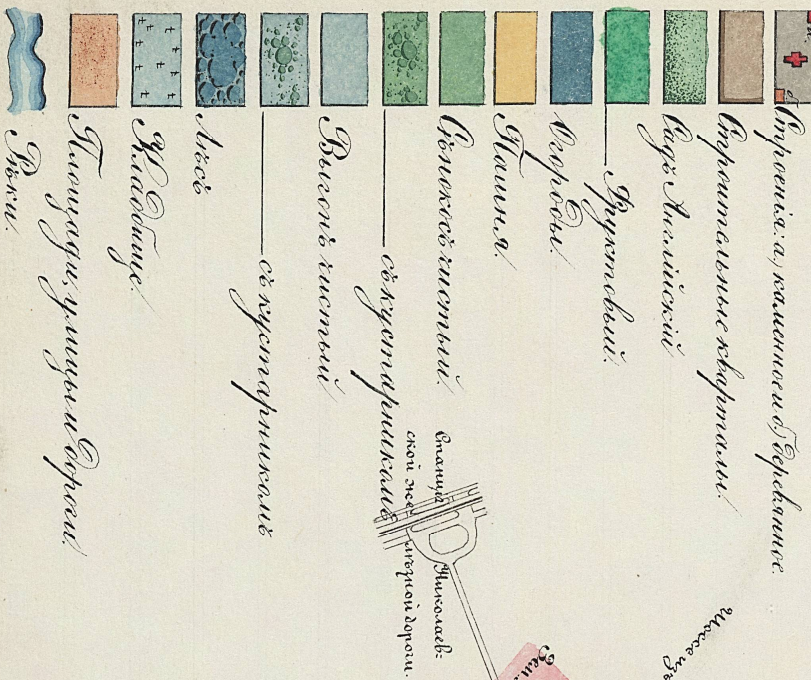 Строенія: а) каменное и б) деревянное.
Строительные кварталы.
Садъ Англійскій.
Фруктовый.
Огороды.
Пашня.
Сѣнокосъ чистый.
съ кустарникомъ
Выгонъ чистый
съ кустарникомъ
Лѣсъ
Кладбище.
Площади, улицы и дороги.
Рѣки.
Станція Николаев-
ской желѣзной дороги.
Шоссе изъ